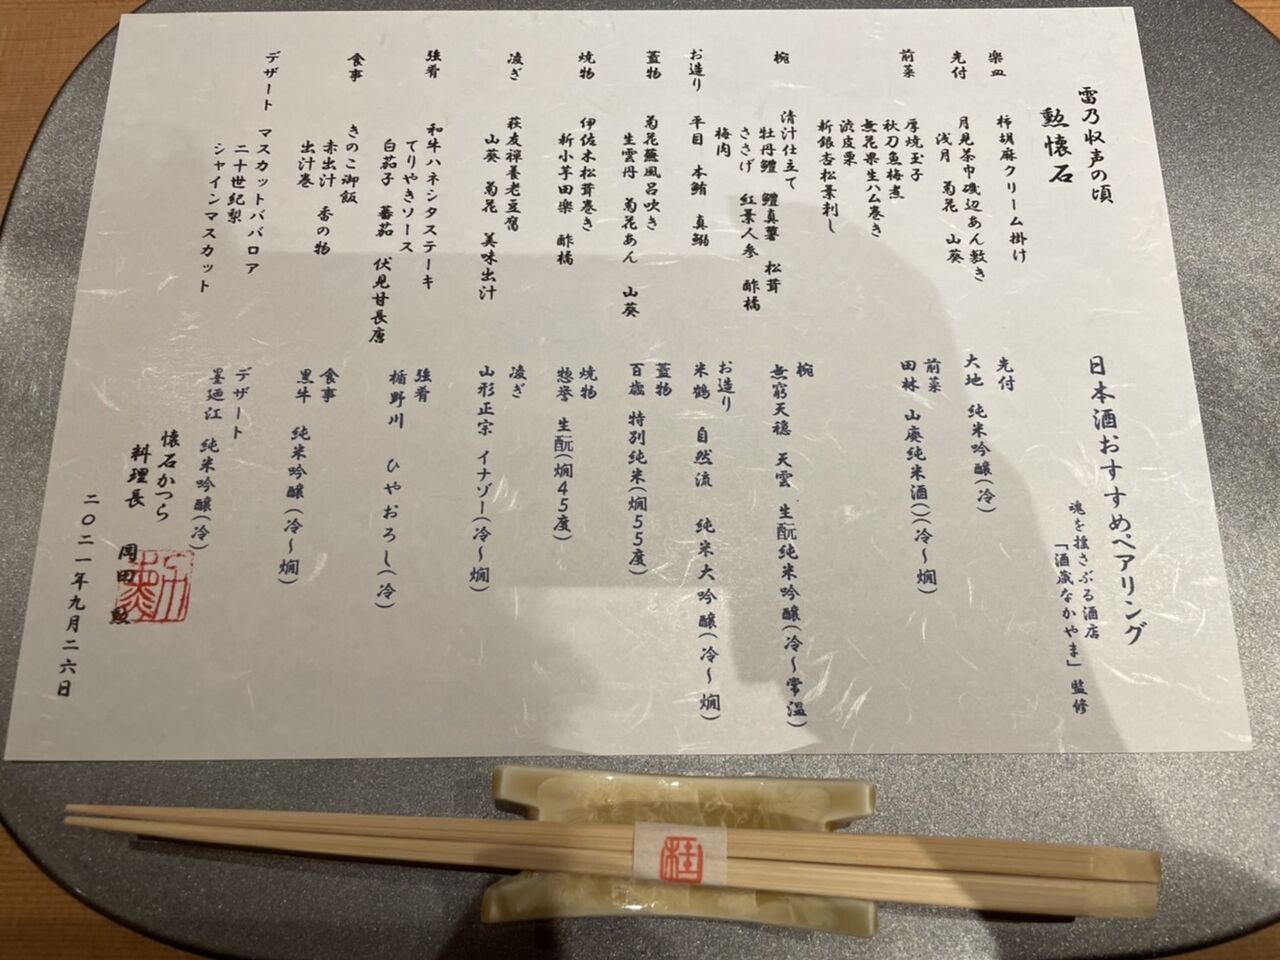 雷乃収声の頃
勲懐石
楽皿　柿胡麻クリーム掛け
先付　月見茶巾磯辺あん敷き
浅月　菊花　山葵
前菜　厚焼玉子
秋刀魚梅煮
無花果生ハム巻き
渋皮栗
新銀杏松葉刺し
椀　清汁仕立て
牡丹鱧　鱧真薯　松茸
ささげ　紅葉人参　酢橘
梅肉
お造り　平目　本鮪　真鰯
蓋物　菊花蕪風呂吹き
生雲丹　菊花あん　山葵
焼物　伊佐木松茸巻き
新小芋田楽　酢橘
凌ぎ　萩友禅養老豆腐
山葵　菊花　美味出汁
強肴　和牛ハネシタステーキ
てりやきソース
白茄子　蕃茄　伏見甘長唐
食事　きのこ御飯
赤出汁　香の物
出汁巻
デザート　マスカットババロア
二十世紀梨
シャインマスカット
日本酒おすすめペアリング
魂を揺さぶる酒店
「酒蔵なかやま」監修
先付
大地　純米吟醸(冷)
前菜
田林　山廃純米酒()(冷〜燗)
椀
無窮天穏　天雲　生酛純米吟醸(冷〜常温)
お造り
米鶴　自然流　純米大吟醸(冷〜燗)
蓋物
百歳　特別純米(燗55度)
焼物
惣誉　生酛(燗45度)
凌ぎ
山形正宗　イナゾー(冷〜燗)
強肴
楯野川　ひやおろし(冷)
食事
黒牛　純米吟醸(冷〜燗)
デザート
墨廼江　純米吟醸(冷)
懐石かつら
料理長　岡田　勲
二〇二一年九月二六日
桂